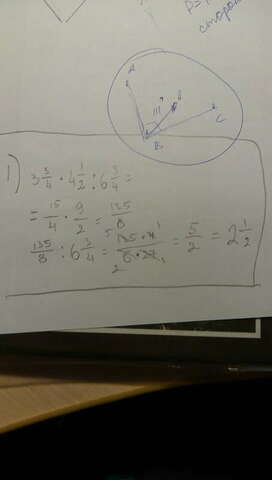 сторон
A
111°
B
C
1)
3 3/4 · 4 1/2 : 6 3/4 =
= 15/4 · 9/2 = 135/8
135/8 : 6 3/4 = 135 · 4 / 8 · 27 = 5/2 = 2 1/2